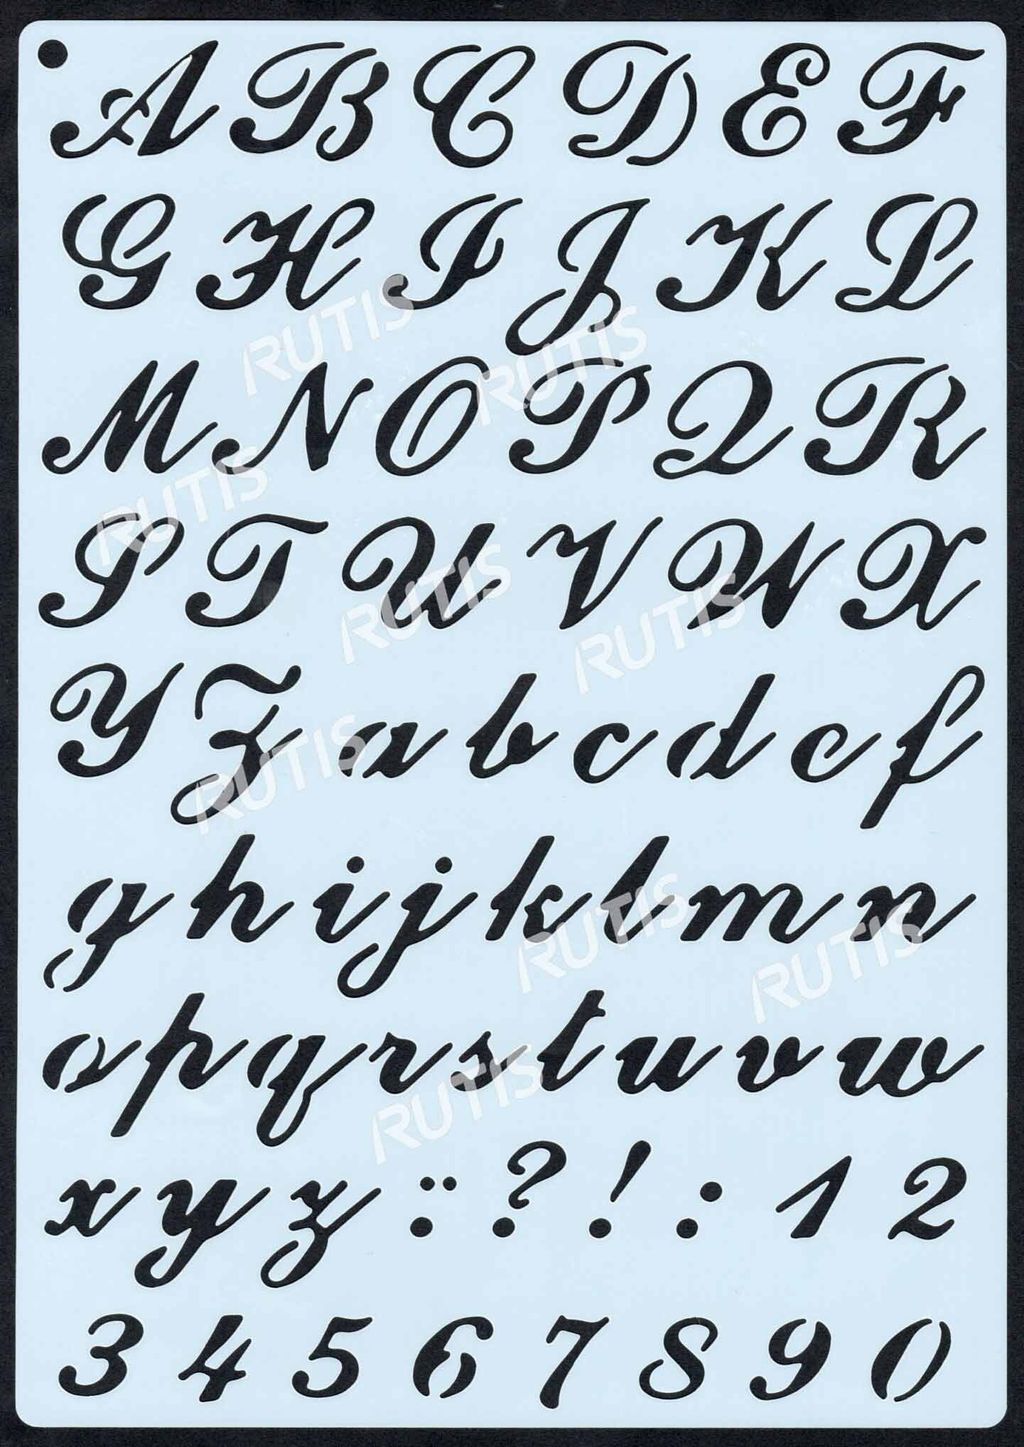 A B C D E F
G H I J K L
M N O P Q R
S T U V W X
Y Z a b c d e f
g h i j k l m n
o p q r s t u v w
x y z ¨ . ? ! : 1 2
3 4 5 6 7 8 9 0
RUTIS
RUTIS
RUTIS
RUTIS
RUTIS
RUTIS
RUTIS
RUTIS
RUTIS